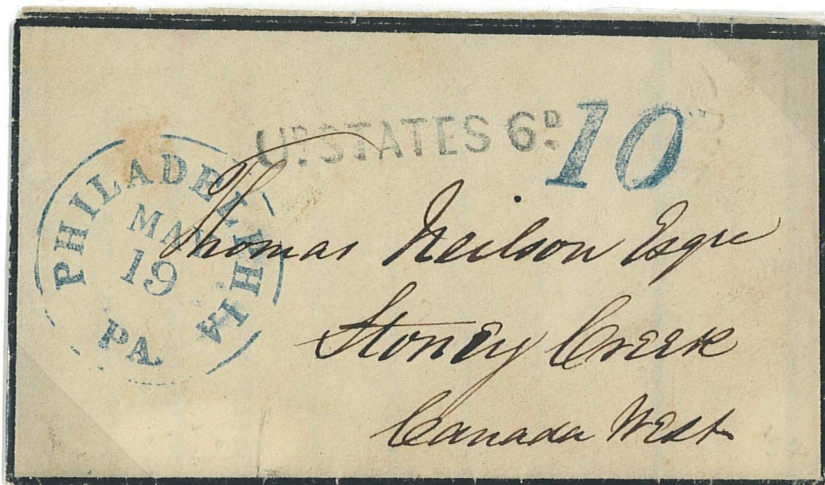 UD. STATES 6D.
10
PHILADELPHIA
MAY
19
PA.
Thomas Neilson Esqre
Stoney Creek
Canada West